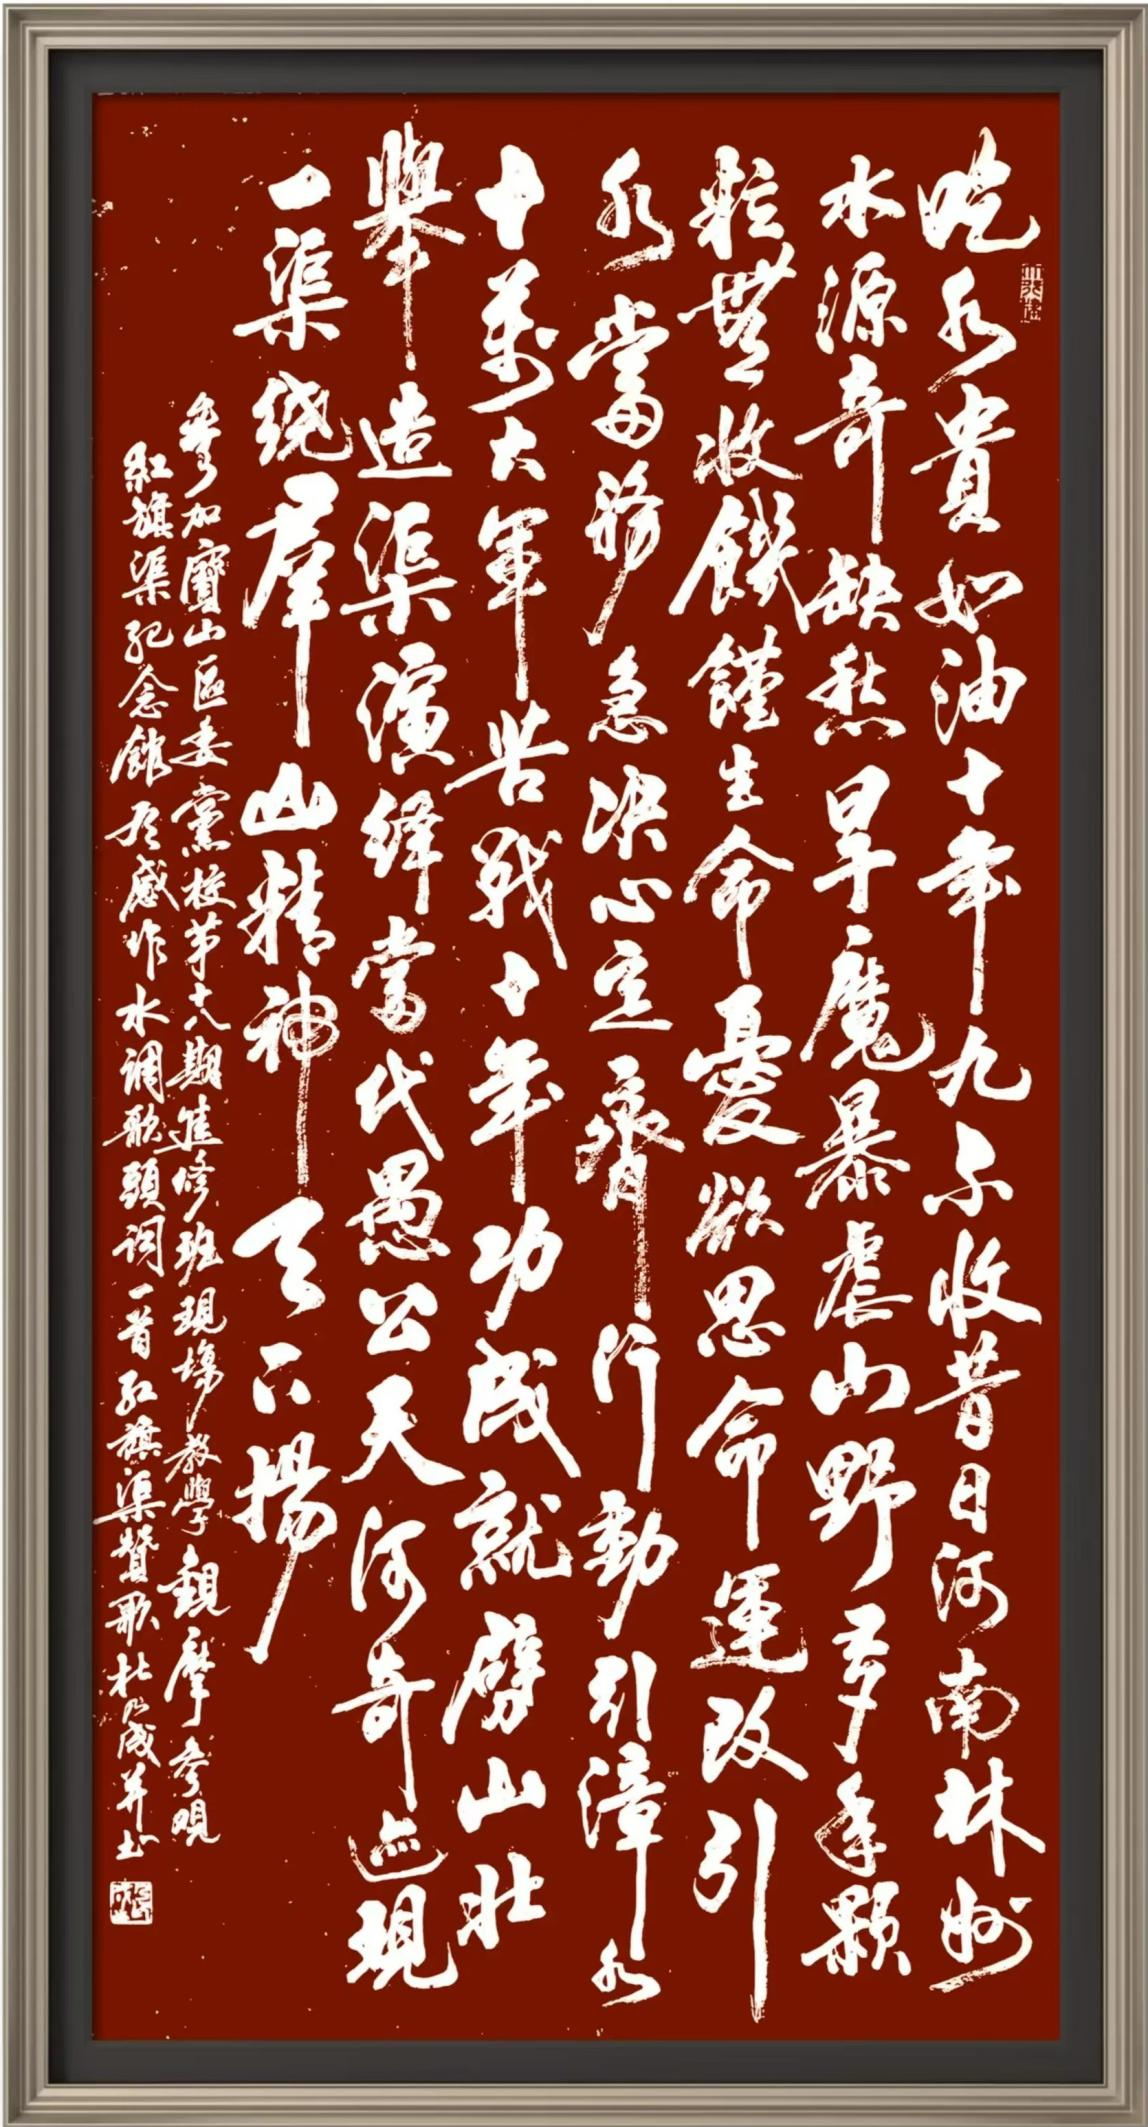 吃水貴如油十年九不收昔日河南林州
水源奇缺愁旱魔暴虐山野多年顆
粒無收饑饉生命憂欲思命運改引
水當務急決心定齊行動引漳水
十萬大軍苦戰十年功成就劈山壯
舉造渠演繹當代愚公天河奇迹現
一渠绕羣山精神天下揚
參加寶山區委黨校第十八期進修班現場教學觀摩參观
紅旗渠紀念館有感作水調歌頭词一首红旗渠贊歌杜成并书